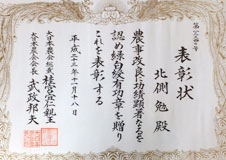 表彰状
北側 勉 殿
農事改良に功績顕著なるを
認め緑白綬有功章を贈り
これを表彰する
平成二十三年十一月十八日
大日本農会総裁 桂宮宜仁親王
大日本農会会長 武政邦夫